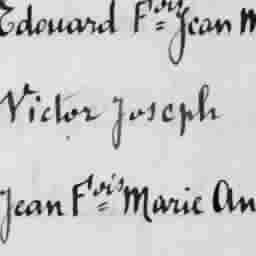 Edouard Fois Jean M
Victor Joseph
Jean Fois Marie An